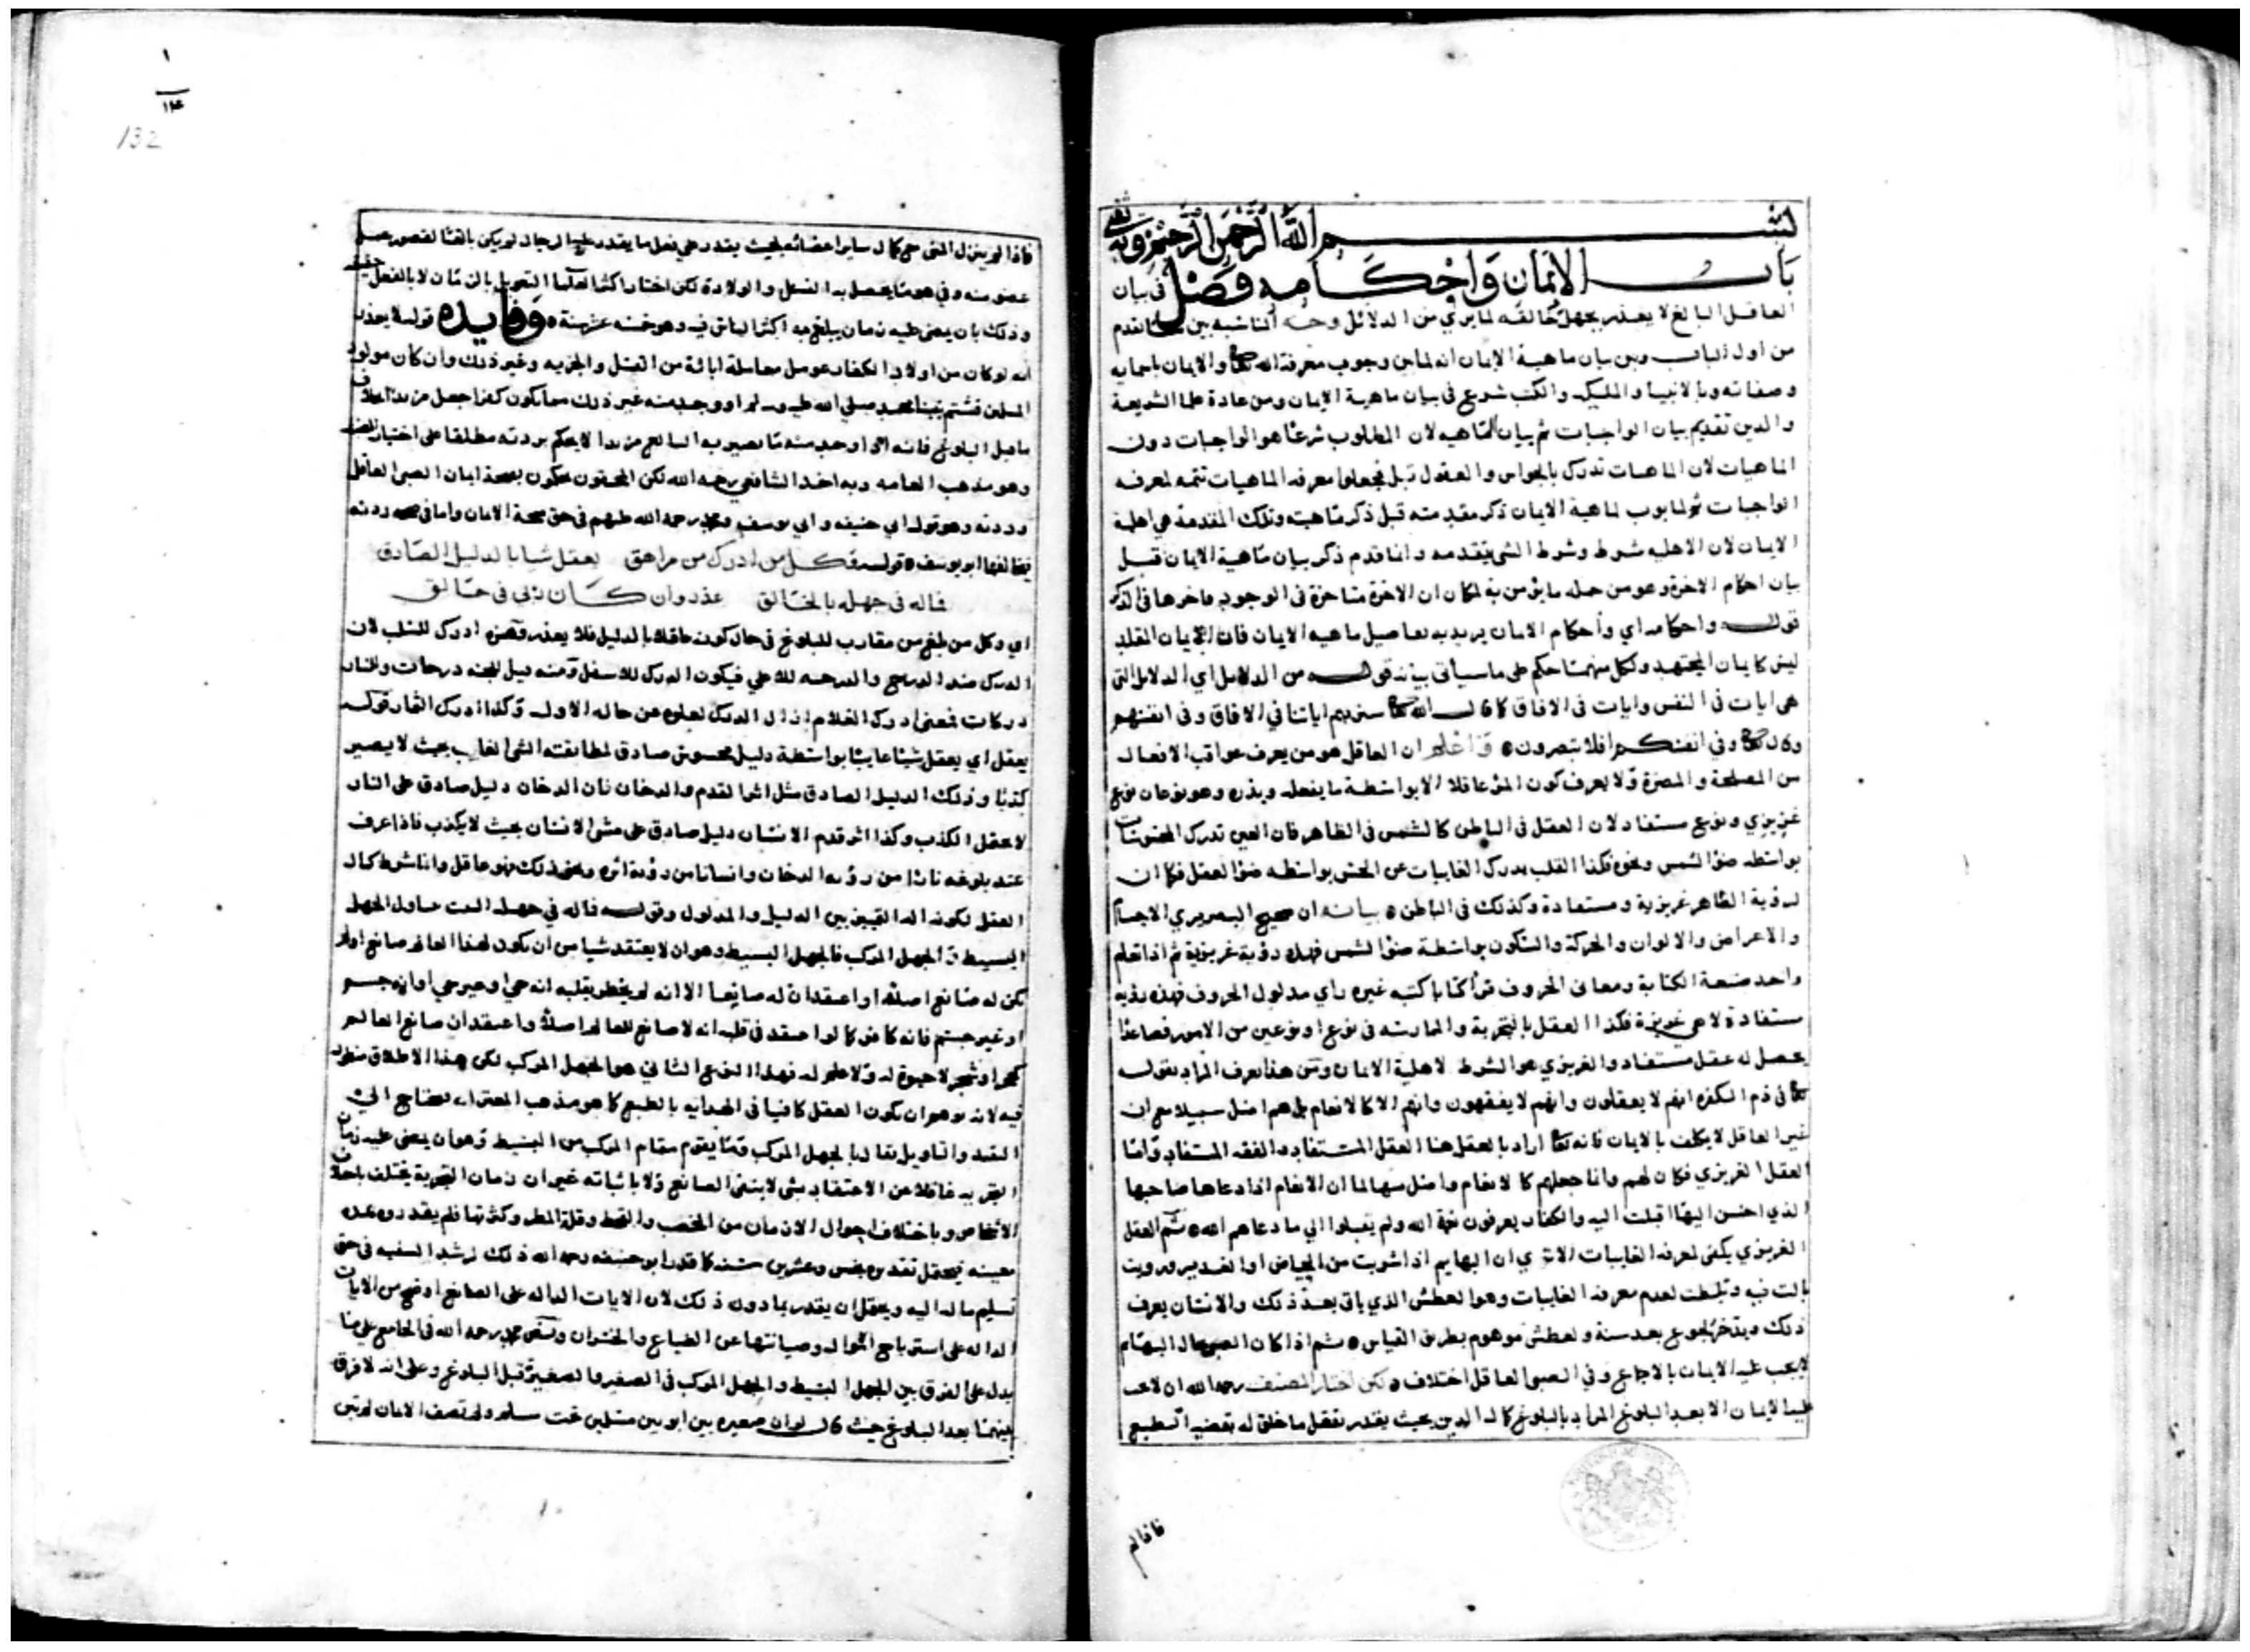 بسم الله الرحمن الرحيم وبه ثقتي
باب الايمان واحكامه فصل في بيان
العاقل البالغ لا يعذر بجهل خالقه لما يري من الدلائل وجه المناسبة بين ما تقدم
من اول الباب وبين بيان ماهية الايمان انه لما بين وجوب معرفة الله تعا والايمان باسمايه
وصفاته وبالانبيا والمليكة والكتب شرع في بيان ماهية الايمان ومن عادة علما الشريعة
والدين تقديم بيان الواجبات ثم بيان الماهيه لان المطلوب شرعا هو الواجبات دون
الماهيات لان الماهيات تدرك بالحواس والعقول قبل فجعلوا معرفه الماهيات تتمه لمعرفه
الواجبات ثم لما بوب لماهية الايمان ذكر مقدمته قبل ذكر ماهيته وتلك المقدمة هي اهلية
الايمان لان الاهليه شرط وشرط الشي يتقدمه وانما قدم ذكر بيان ماهية الايمان قبل
بيان احكام الاخرة وهو من جمله ما يؤمن به لمكان ان الاخرة متاخرة في الوجود فاخرها في الذكر
قوله واحكامه اي وأحكام الايمان يريد به تفاصيل ماهيه الايمان فان ايمان المقلد
ليس كايمان المجتهد ولكل منهما حكم على ما سيأتي بيانه قوله من الدلايل اي الدلايل التي
هي ايات في النفس وايات في الافاق كما قال الله تعا سنريهم اياتنا في الافاق وفي انفسهم
وقال تعا وفي انفسكم افلا تبصرون واعلم ان العاقل هو من يعرف عواقب الافعال
من المصلحة والمضرة ولا يعرف كون المرء عاقلا الا بواسطة ما يفعله ويذره وهو نوعان نوع
غريزي ونوع مستفاد لان العقل في الباطن كالشمس في الظاهر فان العين تدرك المحسوسات
بواسطه ضوء الشمس ونحوه فكذا القلب يدرك الغايبات عن الحس بواسطه ضوء العقل فكما ان
لرؤية الظاهر غريزية ومستفادة وكذلك في الباطن بيانه ان صحيح البصر يري الاجسام
والاعراض والالوان والحركة والسكون بواسطة ضوء الشمس فهذه رؤية غريزية ثم اذا تعلم
واحد صنعة الكتابة ومعاني الحروف قرأ كتابا كتبه غيره رأي مدلول الحروف فهذه رؤيه
مستفادة لا هي غريزة فكذا العقل بالتجربة والممارسة في نوع او نوعين من الامور فصاعدا
يحصل له عقل مستفاد والغريزي هو الشرط لاهلية الايمان ومن هنا يعرف المراد بقوله
تعا في ذم الكفره انهم لا يعقلون وانهم لا يفقهون وانهم الا كالانعام بل هم اضل سبيلا مع ان
غير العاقل لا يكلف بالايمان فانه تعا اراد بالعقل هنا العقل المستفاد والفقه المستفاد واما
العقل الغريزي فكان لهم وانما جعلهم كالانعام واضل منها لما ان الانعام اذا دعاها صاحبها
الذي احسن اليها اقبلت اليه والكفار يعرفون نعمة الله ولم يقبلوا الي ما دعاهم الله ثم العقل
الغريزي يكفي لمعرفه الغايبات الا تري ان البهايم اذا شربت من الحياض او الغدير ورويت
بالت فيه وتخبطت لعدم معرفة الغايبات وهو العطش الذي ياتي بعد ذلك والانسان يعرف
ذلك ويدخر لجوع بعد سنة ولعطش موهوم بطريق القياس ثم اذا كان الصبي حال البهائم
لا يجب عليه الايمان بالاجماع وفي الصبي العاقل اختلاف ولكن اختار المصنف رحمه الله ان لا يجب
عليه الايمان الا بعد البلوغ المراد بالبلوغ كمال الدين بحيث يقدر بفعل ما خلق له بقضيه الطبع
فاذا لم
١
١٤
132
فاذا لم ينزل المني مع كمال ساير اعضائه بحيث يقدر علي فعل ما يقدر عليه الرجال لم يكن بالغا لقصور حصل
عضو منه وفي هو ما يحصل به النسل والولادة لكن اختار اكثر العلما التعويل بالزمان لا بالفعل حقيقة
وذلك بان يمضي عليه زمان يبلغ به اكثر الناس فيه وهو خمسه عشر سنة وفايده قوله لا يعذر
انه لو كان من اولاد الكفار عومل معاملة ابائه من القتل والجزيه وغير ذلك وان كان مولود
المسلمين فشتم نبينا محمد صلي الله عليه وسلم او وجد منه غير ذلك مما يكون كفرا جعل مرتدا بخلاف
ما قبل البلوغ فانه اذا وجد منه ما يصير به البالغ مرتدا لا يحكم بردته مطلقا على اختيار المصنف
وهو مذهب العامه وبه اخذ الشافعي رحمه الله لكن المحققون يحكمون بصحة ايمان الصبي العاقل
وردته وهو قول ابي حنيفه وابي يوسف ومحمد رحمة الله عليهم في حق صحة الايمان واما في صحه ردته
فخالفهما ابو يوسف قوله وكل من ادرك من مراهق يعقل شيا بالدليل الصادق
فاله في جهله بالخالق عذر وان كان ربي في حالق
اي وكل من بلغ من مقارب للبلوغ في حال كونه عاقلا بالدليل فلا يعذر وهمزة ادرك للسلب لان
الدرك ضد الدرج والدرجه للاعلي فيكون الدرك للاسفل ومنه قيل للجنه درجات وللنار
دركات فمعنى ادرك الغلام ازال الدرك لعلوه عن حاله الاول وكذا ادرك الثمار قوله
يعقل اي يعقل شيئا غايبا بواسطة دليل محسوس صادق لمطابقته الشي الغايب بحيث لا يصير
كذبا وذلك الدليل الصادق مثل اثر القدم والدخان فان الدخان دليل صادق على النار
لا يحتمل الكذب وكذا اثر قدم الانسان دليل صادق على مشي الانسان بحيث لا يكذب فاذا عرف
عند بلوغه نارا من رؤيه الدخان وانسانا من رؤية اثره ونحو ذلك فهو عاقل وانما شرط كمال
العقل لكونه اله التمييز بين الدليل والمدلول وقوله فاله في جهله البيت تناول الجهل
البسيط والجهل المركب فالجهل البسيط وهو ان لا يعتقد شيا من ان يكون لهذا العالم صانع او لم
يكن له صانع اصلا او اعتقد ان له صانعا الا انه لم يخطر بقلبه انه حي او غير حي او انه جسم
او غير جسم فانه كافر كما لو اعتقد في قلبه انه لا صانع للعالم اصلا واعتقد ان صانع العالم
كحجر او شجر لا حيوة له ولا علم له فهذا النوع الثاني هو الجهل المركب لكن هذا الاطلاق منظور
فيه لانه يوهم ان يكون العقل كافيا في الهدايه بالطبع كما هو مذهب المعتزله فيحتاج الي
التقيد والتاويل يقال بالجهل المركب وما يقوم مقام المركب من البسيط وهو ان يمضي عليه زمان
التجربه غافلا عن الاعتقاد بشي لا بنفي الصانع ولا باثباته غير ان زمان التجربة يختلف باختلاف
الاشخاص وباختلاف احوال الازمان من الخصب والقحط وقلة المطر وكثرتها فلم يقدر وه بمدة
معينه فيحتمل تقديره بخمس وعشرين سنه كما قدر ابو حنيفه رحمه الله ذلك لرشد السفيه في حق
تسليم ماله اليه ويحتمل ان يقدر بما دون ذلك لان الايات الداله على الصانع اوضح من الايات
الداله على استرباح الاموال وصيانتها عن الضياع والخسران ونص محمد رحمه الله في الجامع على ما
يدل على الفرق بين الجهل البسيط والجهل المركب في الصغير والصغيرة قبل البلوغ وعلى انه لا فرق
بينهما بعد البلوغ حيث قال لو ان صغيره بين ابوين مسلمين تحت مسلم ولم تصف الايمان لم تبن